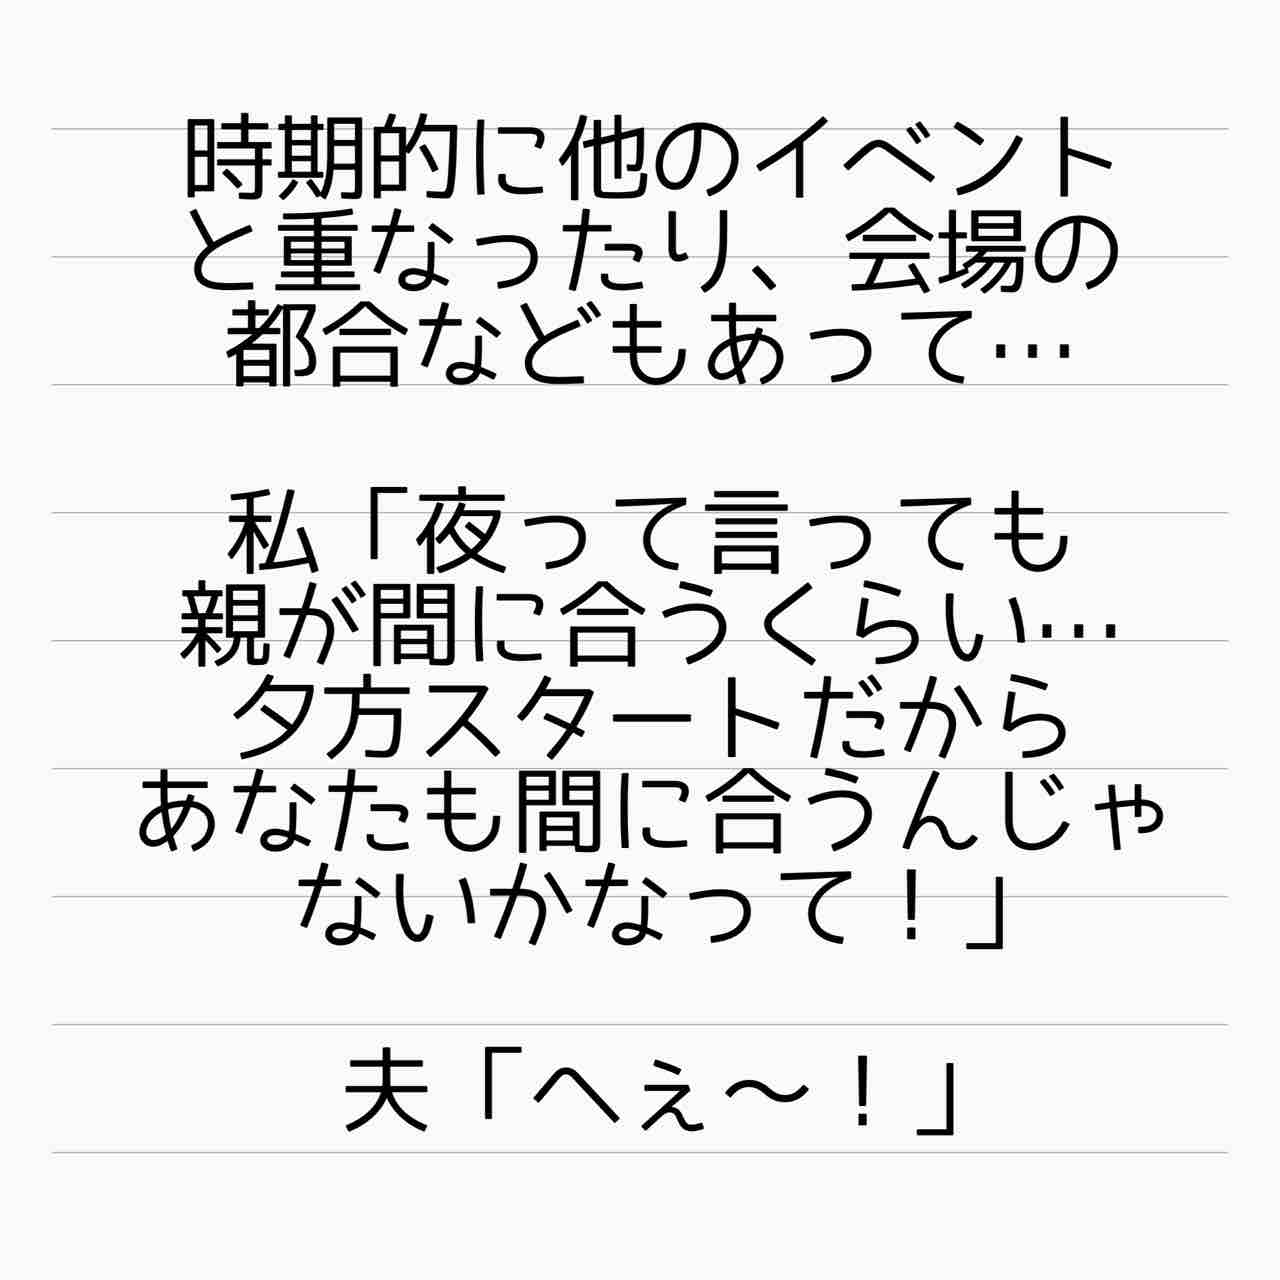 時期的に他のイベント
と重なったり、会場の
都合などもあって…
私「夜って言っても
親が間に合うくらい…
夕方スタートだから
あなたも間に合うんじゃ
ないかなって！」
夫「へぇ〜！」